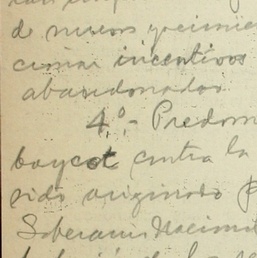 de nuevos yacimie
cionar incentivos
abandonados
4º.- Predom
boycot contra la
sido originado p
Soberania Nacional